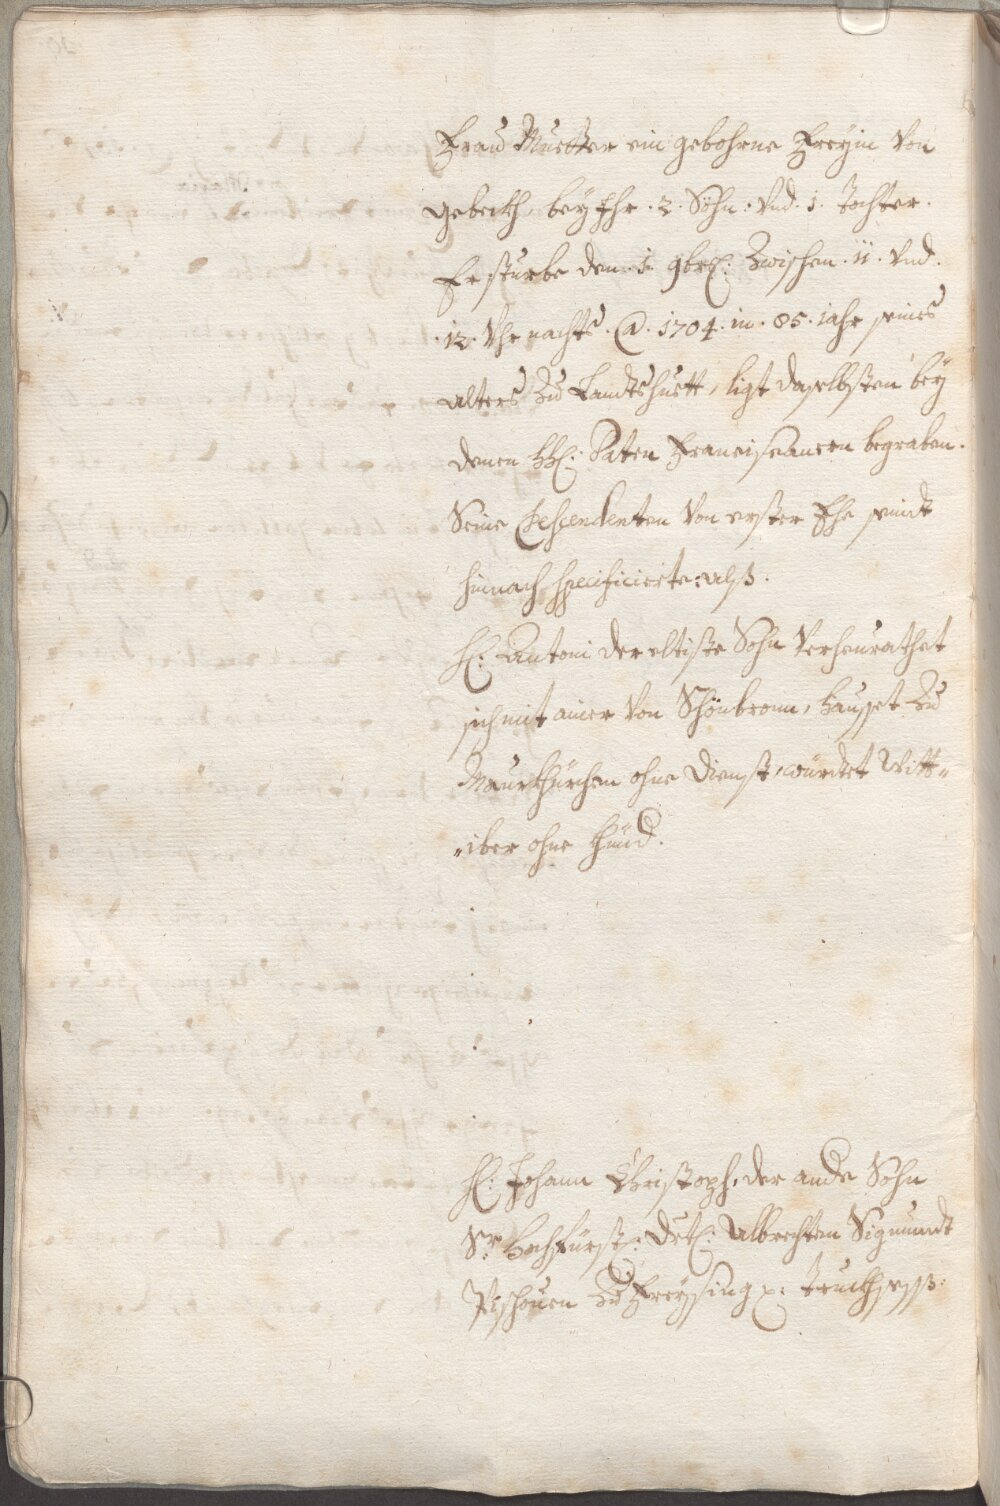 Frau Muetter ein gebohrne Freÿin von
Gebeckh, beÿ Ihr . 2 . Söhn . vnd . 1 . Tochter .
Er sturbe den . 1 . 9br: Zwischen . 11 . vnd .
. 12 . Vhr nachts . @ . 1704 . in . 85 . iahr seines
alters Zu Landtshuett, ligt daselbsten beÿ
denen HH: Patern Franciscanern begraben .
Seine Descendenten von erster Ehe seindt
hinnach specificierte: alß .
H: Antoni der eltiste Sohn verheurathet
sich mit ainer von Schönbronn, hausset Zu
Maurkhürchen ohne dienst, würdtet Witt„
„iber ohne Khünd .
H: Johann Christoph, der ande Sohn
Sr: Hochfürstl: Drtl: Albrechten Sigmundt
Pischouen Zu Freÿsing x: Truckhsess .